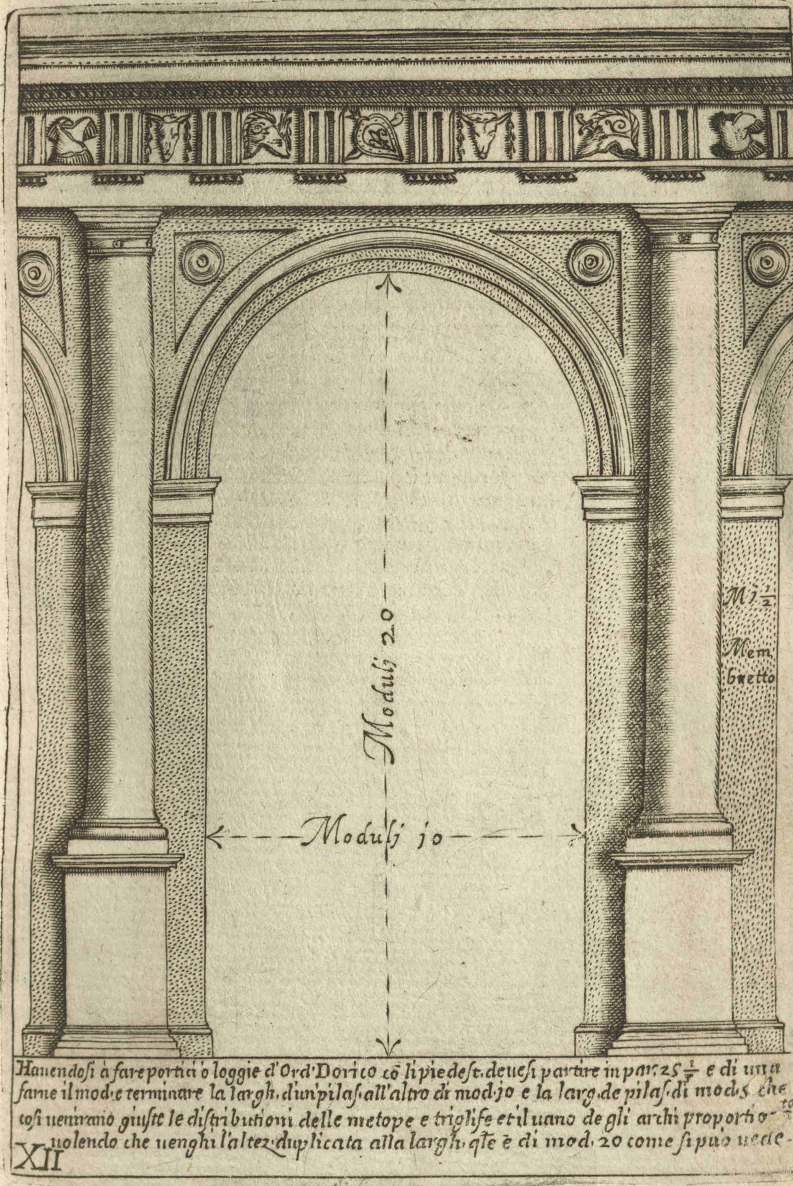 Moduli 20
Moduli jo
M j ½
Mem
bretto
Havendosi à fare portici ò loggie d'Ord: Dorico cō li piedest. devesi partire in par: 25 ⅓ e di una
farne il mod: e terminare la largh. d'un pilas. all'altro di mod: jo e la larg. de pilas. di mod. 5 che
cosi veniranō giuste le distributioni delle metope e triglife et il vano de gli archi proportio-
volendo che venghi l'altez. duplicata alla largh. qle è di mod. 20 come si può vede-
XII